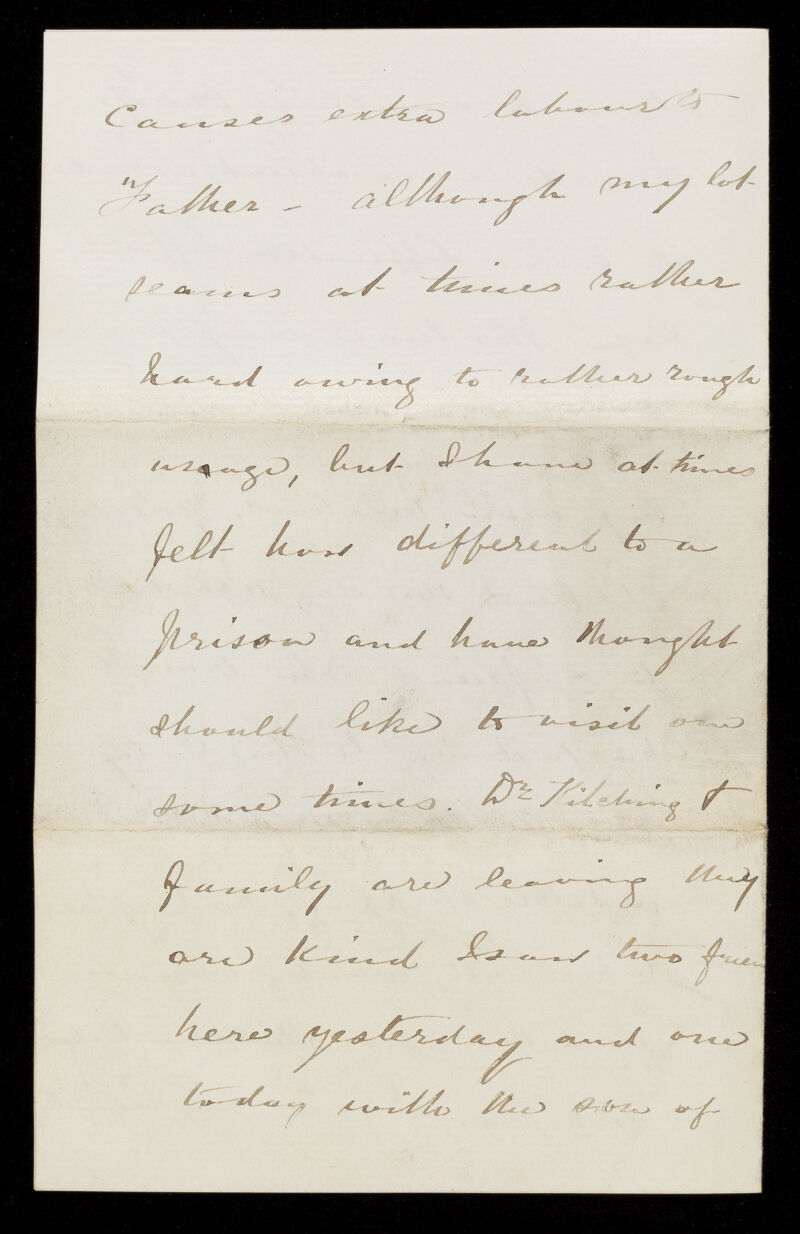 causes extra labour to
Father - although my lot
seams at times rather
hard owing to rather rough
usage, but I have at times
felt how different to a
prison and have thought
should like to visit one
some times. Dr Kitching &
family are leaving they
are kind I saw two frien
here yesterday and one
today with the son of